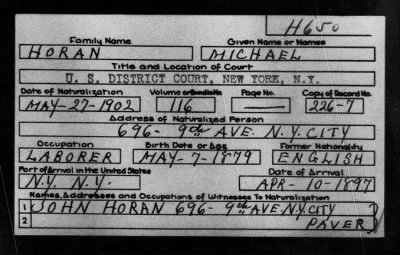 H650
Family Name Given Name or Names
HORAN MICHAEL
Title and Location of Court
U. S. DISTRICT COURT, NEW YORK, N.Y.
Date of Naturalization Volume or Bundle No. Page No. Copy of Record No.
MAY-27-1902 116 — 226-7
Address of Naturalized Person
696- 9th AVE. N.Y. CITY
Occupation Birth Date or Age Former Nationality
LABORER MAY-7-1879 ENGLISH
Port of Arrival in the United States Date of Arrival
N.Y. N.Y. APR-10-1897
Names, Addresses and Occupations of Witnesses To Naturalization
1 JOHN HORAN 696- 9th AVE. N.Y. CITY
2 PAVER